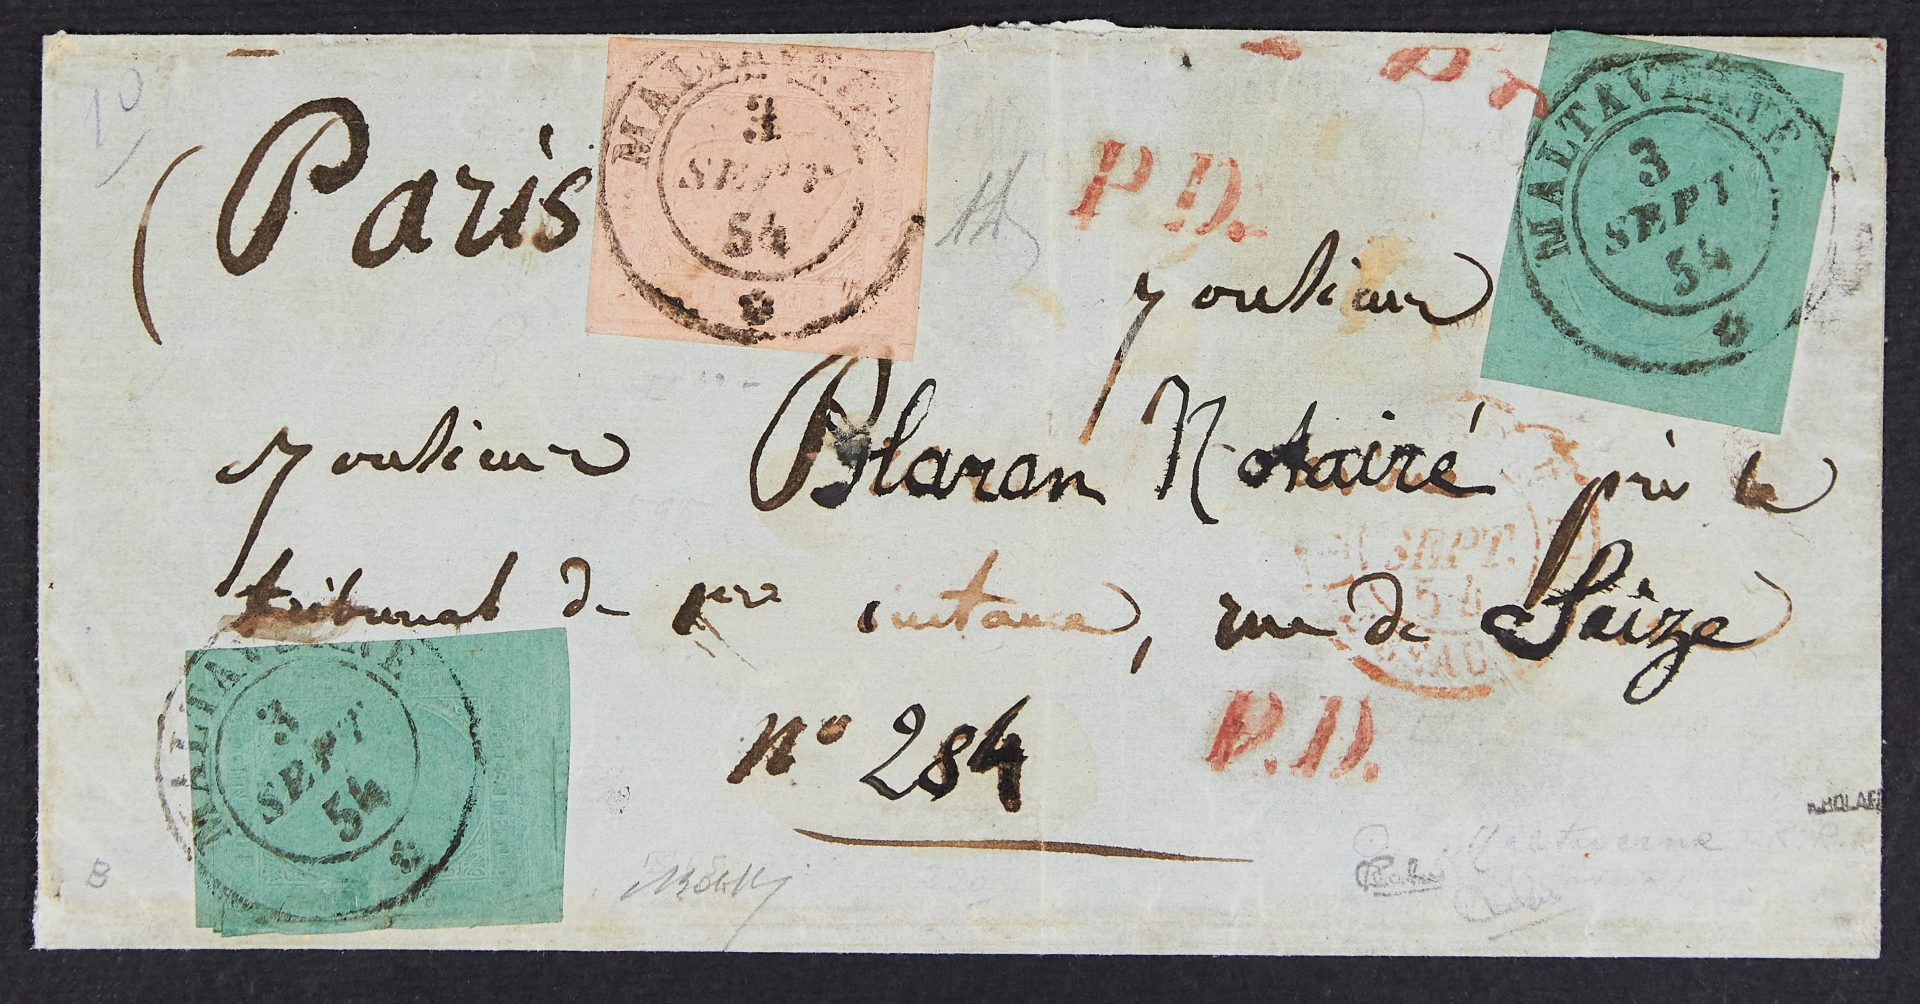 10
Paris
MALTAVERNE
3
SEPT
54
P.D.
MALTAVERNE
3
SEPT
54
Monsieur
Monsieur Blaran Notairé près le
tribunal de 1ere instance, rue de Seize
SEPT.
54
MALTAVERNE
3
SEPT
54
n° 284
P.D.
B
Maltaverne